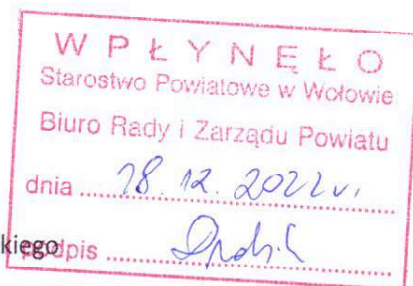 WPŁYNĘŁO
Starostwo Powiatowe w Wołowie
Biuro Rady i Zarządu Powiatu
dnia ..... 28.12.2022 r.
kiego
podpis .....